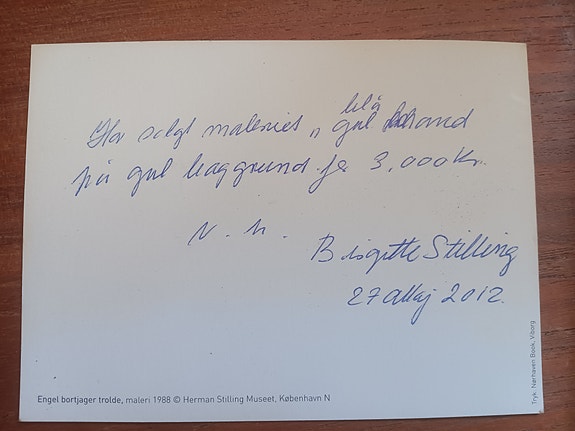 Har solgt maleriet "gul blå mand
på gul baggrund for 3,000 Kr.
v. h.
Birgitte Stilling
27 Maj 2012.
Engel bortjager trolde, maleri 1988 © Herman Stilling Museet, København N
Tryk: Nørhaven Book, Viborg